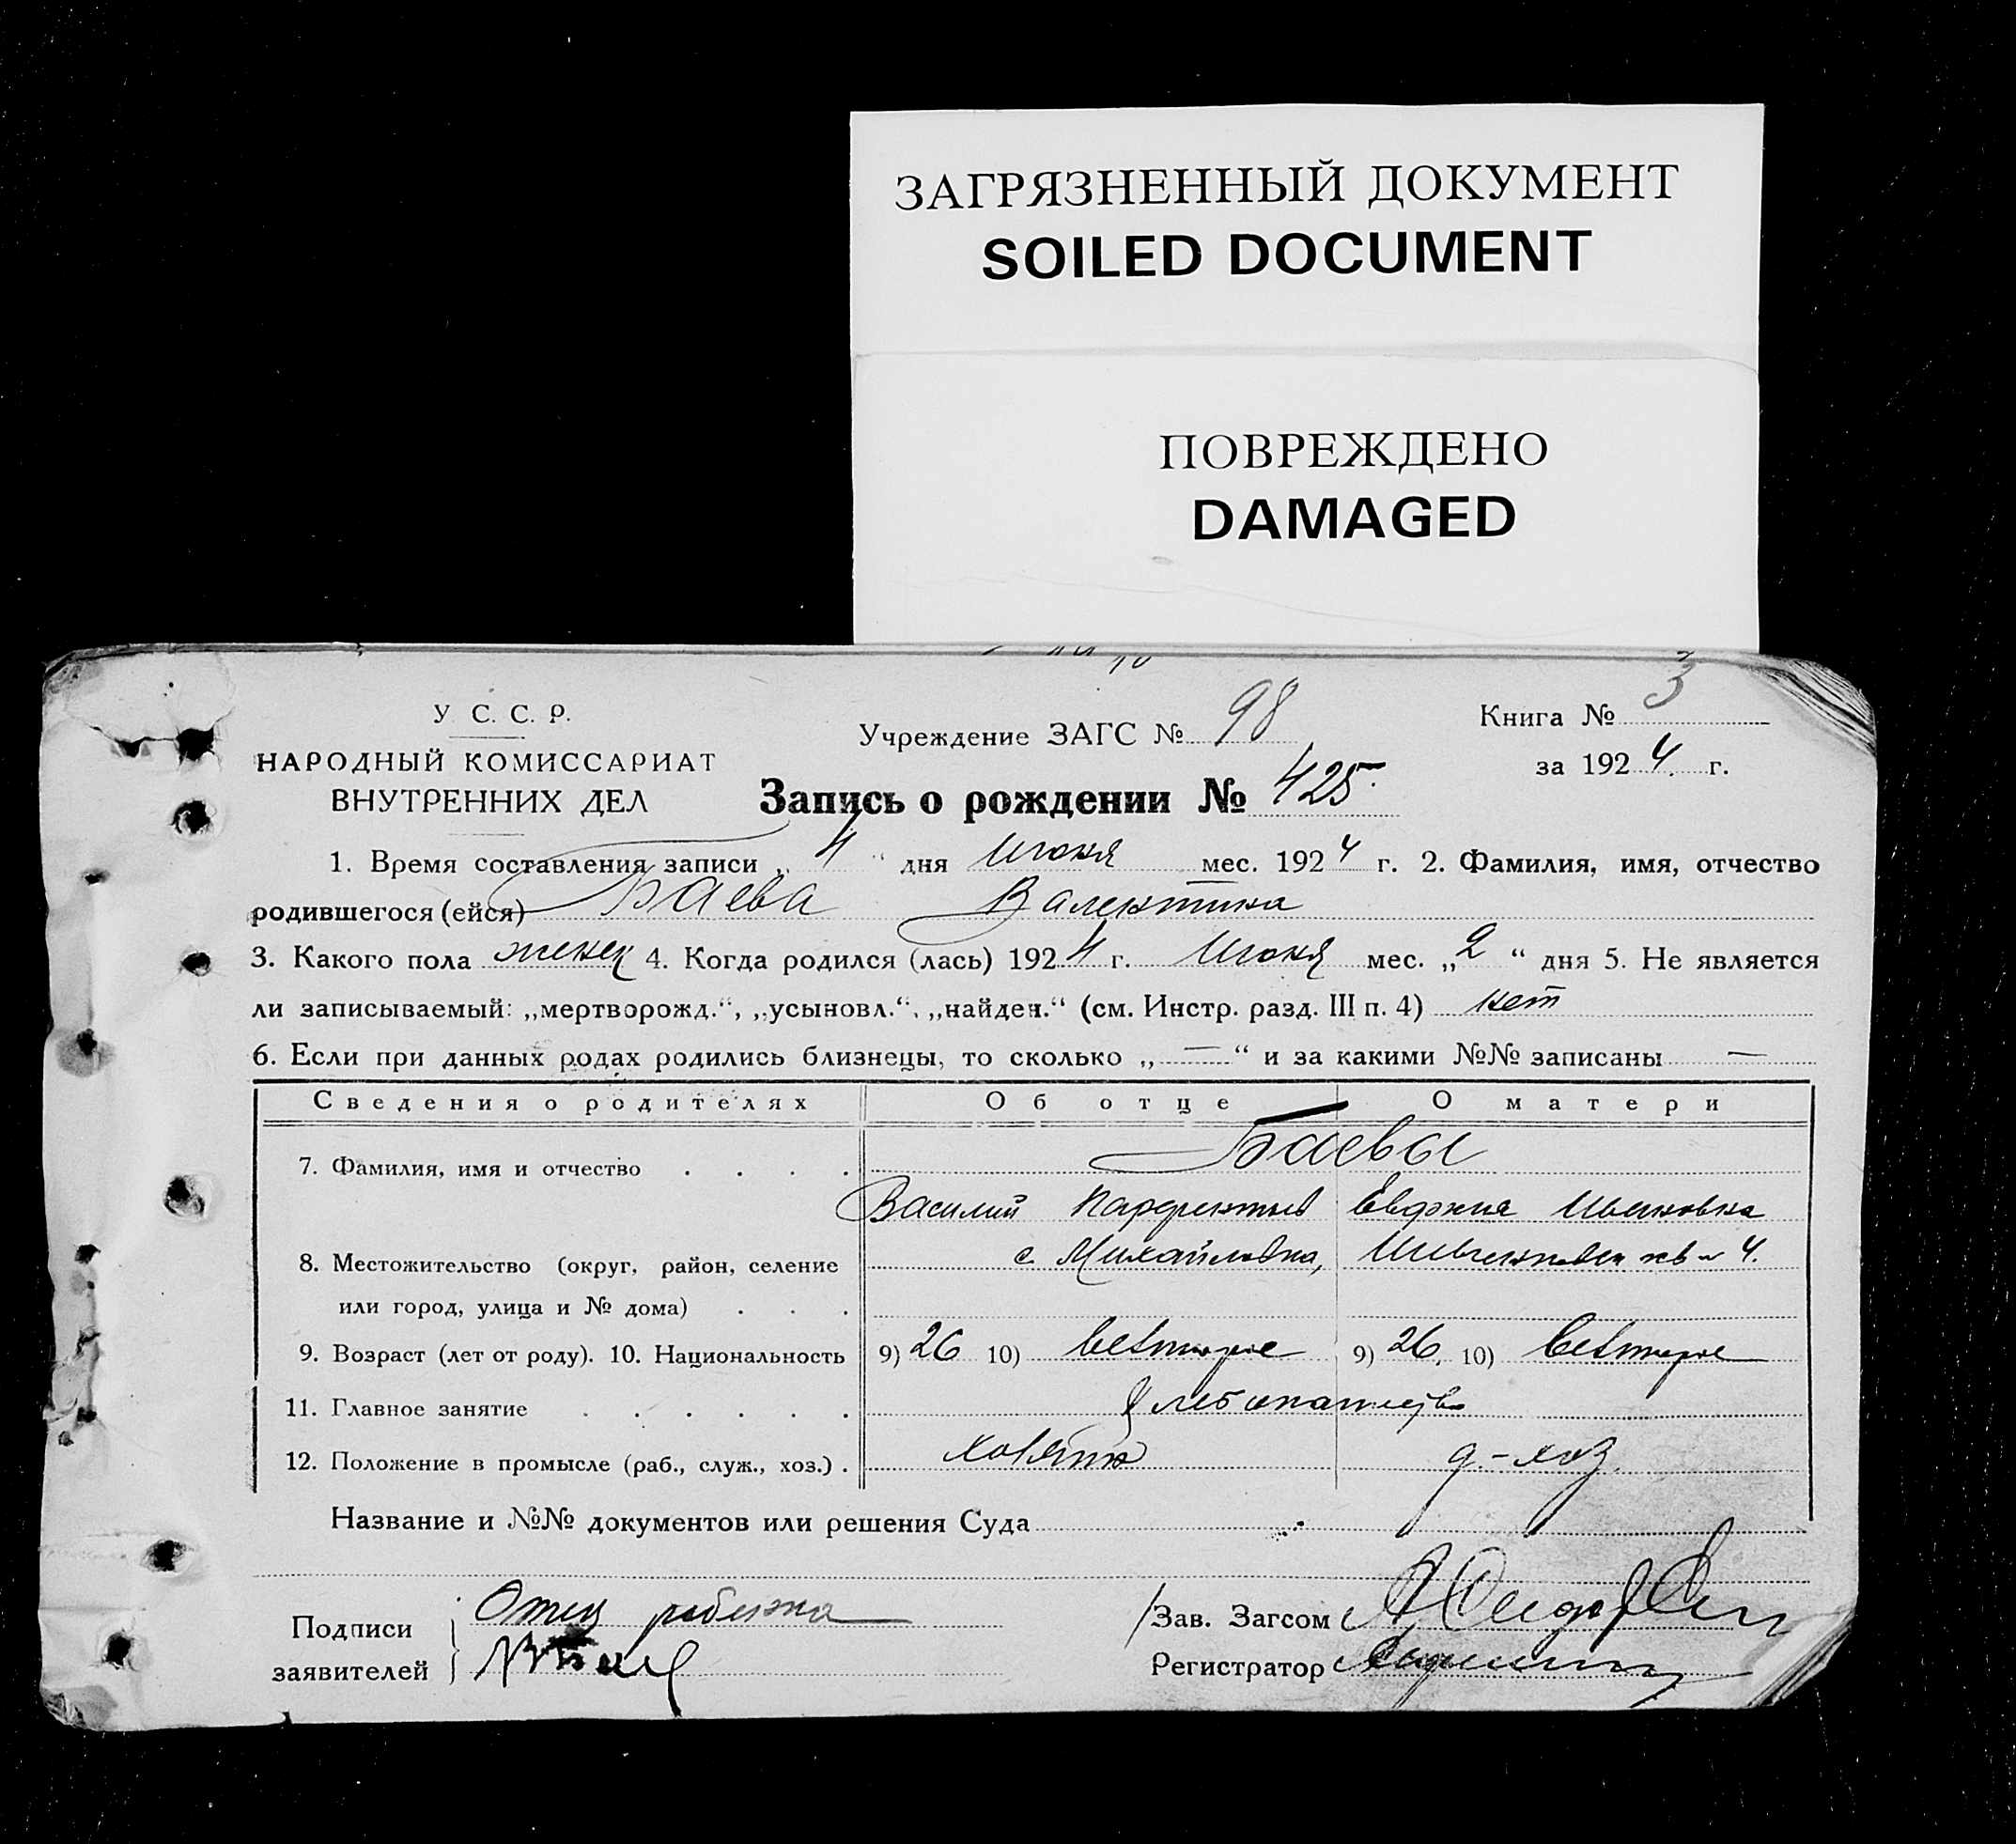 ЗАГРЯЗНЕННЫЙ ДОКУМЕНТ
SOILED DOCUMENT
ПОВРЕЖДЕНО
DAMAGED
У. С. С. Р.
НАРОДНЫЙ КОМИССАРИАТ
ВНУТРЕННИХ ДЕЛ
Учреждение ЗАГС № 98
Книга № 3
за 1924 г.
Запись о рождении № 425.
1. Время составления записи „4“ дня Июня мес. 1924 г. 2. Фамилия, имя, отчество
родившегося (ейся) Баева Валентина
3. Какого пола женск 4. Когда родился (лась) 1924 г. Июня мес. „2“ дня 5. Не является
ли записываемый: „мертворожд.“, „усыновл.“, „найден.“ (см. Инстр. разд. III п. 4) нет
6. Если при данных родах родились близнецы, то сколько „—“ и за какими №№ записаны —
Сведения о родителях Об отце О матери
7. Фамилия, имя и отчество Баевы
Василий Евдокия Ивановна
8. Местожительство (округ, район, селение с. Михайловка, 4.
или город, улица и № дома)
9. Возраст (лет от роду). 10. Национальность 9) 26 10) 9) 26. 10)
11. Главное занятие Хлебопашество
12. Положение в промысле (раб., служ., хоз.) хозяин д.-хоз.
Название и №№ документов или решения Суда
Подписи заявителей Отец ребенка
Зав. Загсом
Регистратор